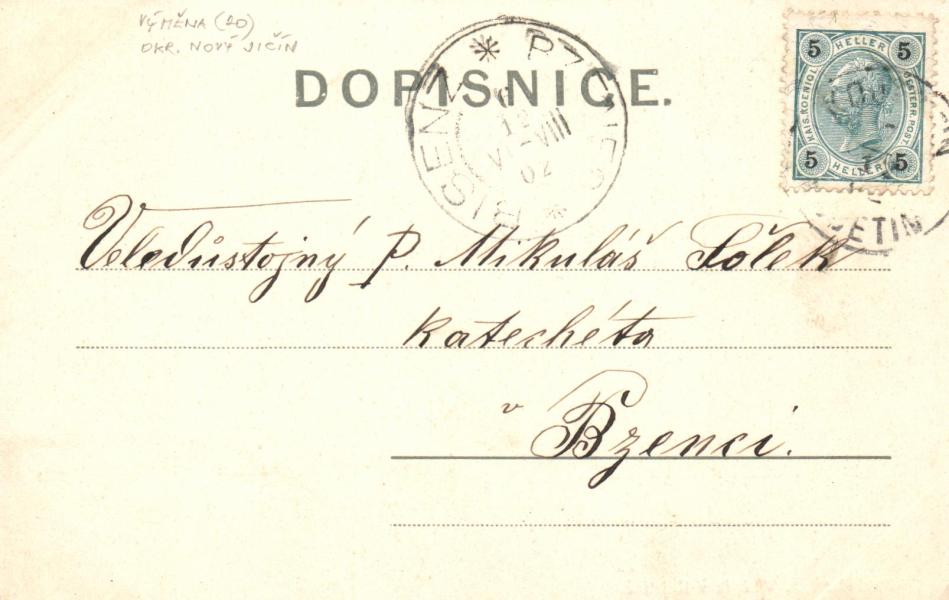 VÝMĚNA (20)
OKR. NOVÝ JIČÍN
DOPISNICE.
BISENZ * BZENEC *
12
VIII
02
5 HELLER 5
KAIS. KOENIGL. OESTERR. POST
5 HELLER 5
SETIN
Veledůstojný P. Mikuláš Šólek
katechéta
v Bzenci.